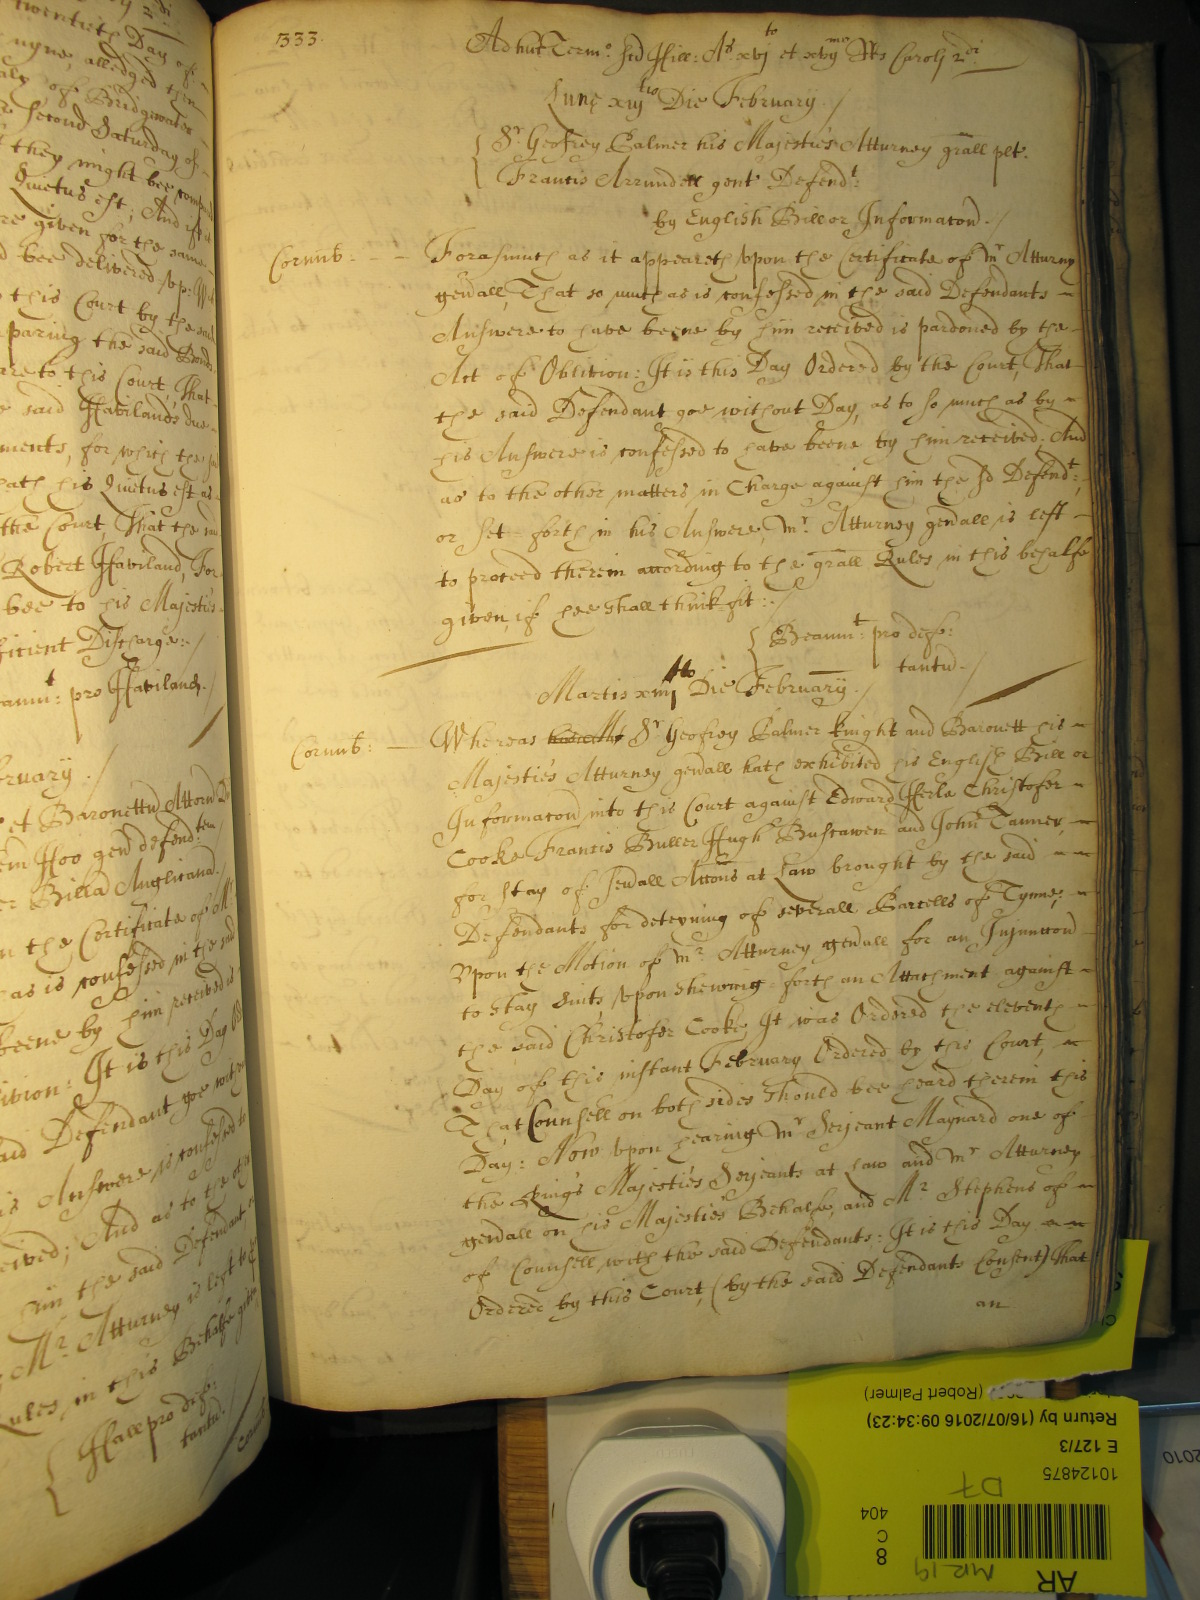 twentieth Day of
ugne, alledged then
of Bridgwater
Second Saturday of
they might bee
Quietus est, And if
are given for the same
bee delivered vp:
this Court by the said
paring the said
are to this Court, That
said Havilands due
ments, for which the
hath his Quietus est as
the Court, That the
Robert Haviland, For
bee to his Majesties
ficient Discharge:
pro Haviland.
bruary
et Baronettu Attorn
Hoo gen defend:
Billa Anglicana
the Certificate of Mr
as is confessed in the
beene by him received is
livion: It is this Day
said Defendant goe with
Answere is confessed to
ceived; And as to the
the said Defendant
Mr Atturney is left to
Rules, in this Behalfe given
Hall pro def:
tantu.
333.
Adhuc Termo Scd Hill: Ao xvj to et xvij mo Rs Caroli 2di
Lune xiij tio Die February
Sr Geofrey Palmer his Majesties Atturney grall plt.
Francis Arrundell gent Defendt:
by English Bill or Informacon.
Cornub: Forasmuch as it appeareth vpon the Certificate of Mr Atturny
genall, That so much as is confessed in the said Defendants
Answere to have beene by him received is pardoned by the
Act of Oblivion: It is this Day Ordered by the Court, That
the said Defendant goe without Day, as to so much as by
his Answere is confessed to have beene by him received; And
as to the other matters in Charge against him the sd Defendt:,
or set forth in his Answere, Mr Atturney genall is left
to proceed therein according to the grall Rules in this behalfe
given, if hee shall think fit:
Beaumt: pro def:
tantu.
Martis xiiij to Die February.
Cornub: Whereas Sr Geofrey Palmer knight and Baronett his
Majesties Atturney genall hath exhibited his English Bill or
Informacon into this Court against Edward Herle Christofer
Cooke Francis Buller Hugh Buscawen and John Tanner,
for stay of sevall Accons at Law brought by the said
Defendants for deteyning of severall Parcells of Tynne;
Vpon the Motion of Mr Atturney genall for an Injunccon
to stay Suits, vpon shewing forth an Attachment against
the said Christofer Cooke, It was Ordered the eleventh
Day of this instant February Ordered by this Court,
That Counsell on both sides should bee heard therein this
Day: Now vpon hearing Mr Serjeant Maynard one of
the Kings Majesties Serjeants at Law and Mr Atturney
genall on his Majesties Behalfe, and Mr Stephens of
of Counsell with the said Defendants: It is this Day
Ordered by this Court, (by the said Defendants Consent) That
an
(Robert Palmer)
Return by (16/07/2016 09:34:23)
E 127/3
10124875
D7
404
C
8
MR 19
AR
2010